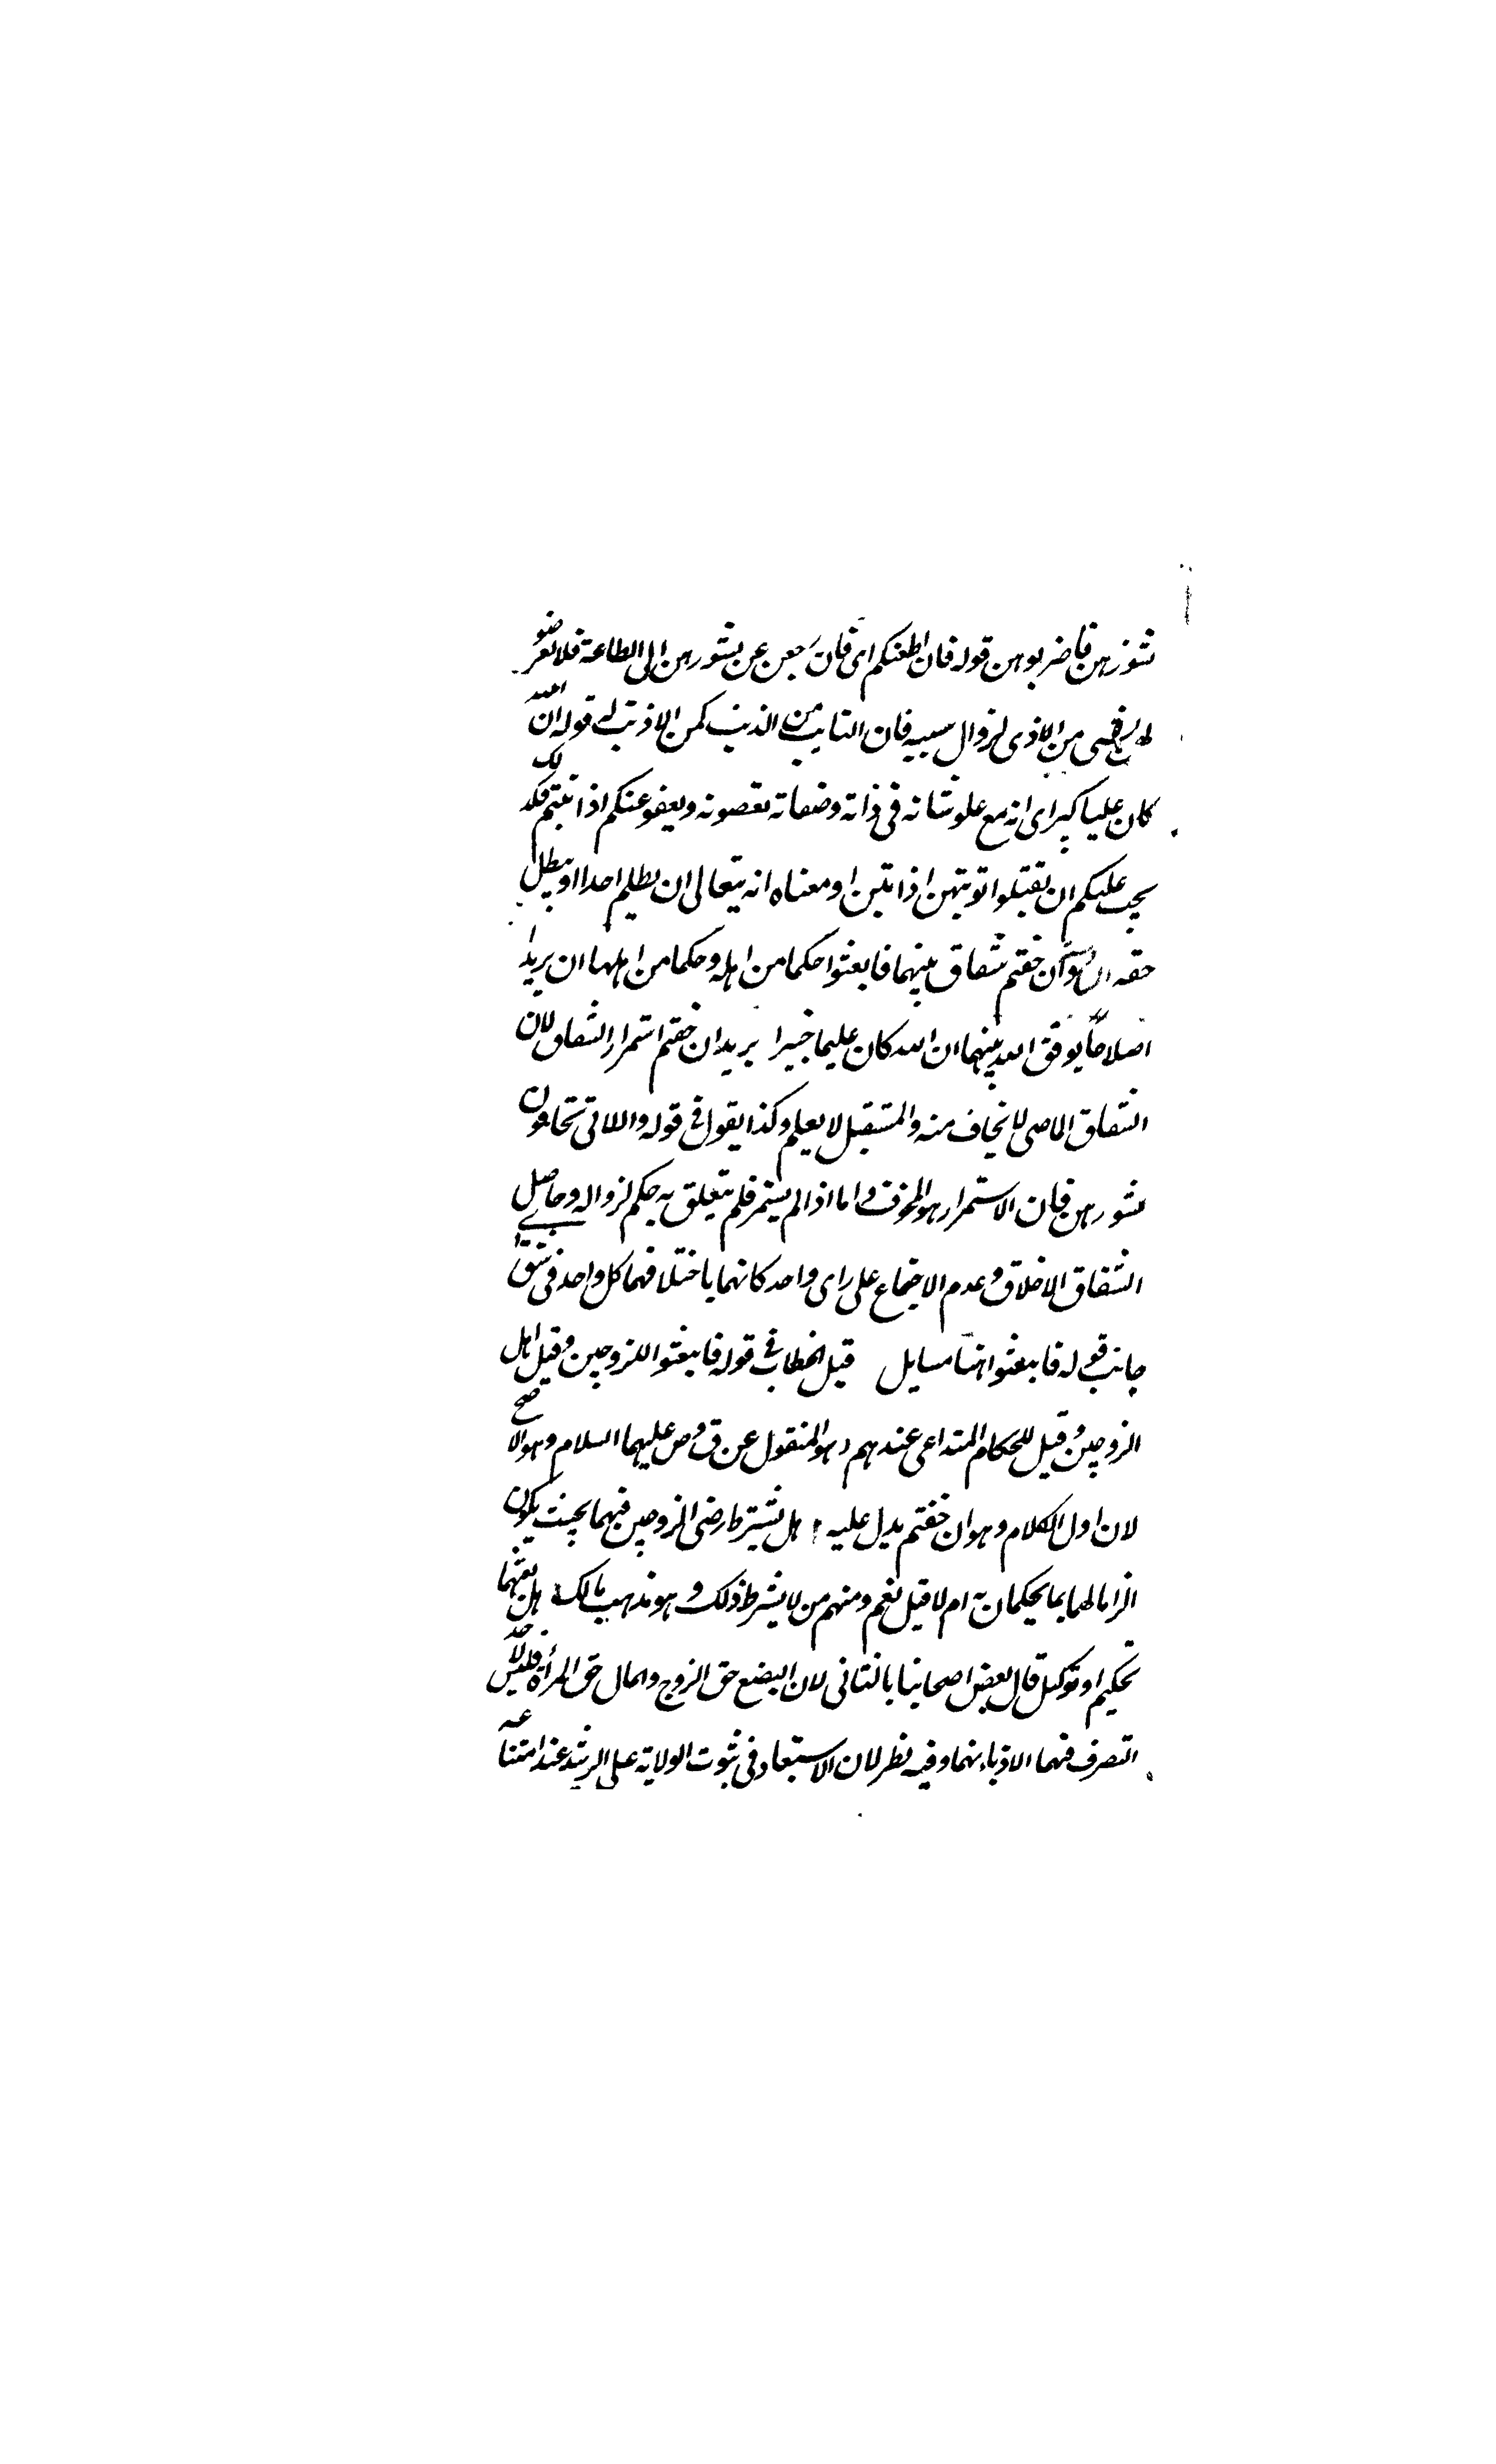 نشوزهن فاضربوهن قوله فان اطعنكم اى فان رجعن عن نشوزهن الى الطاعة فلا تعرضو
لهن بشى من الاذى لزوال سببه فان التايب من الذنب كمن لا ذنب له قوله ان الله
كان عليا كبيرا اى انه مع علو شانه فى ذاته وصفاته تعصونه ويعفو عنكم اذا تبتم فكذلك
يجب عليكم ان تقبلوا توبتهن اذا تبن او معناه انه يتعالى ان يظلم احدا او يبطل
حقه وان خفتم شقاق بينهما فابعثوا حكما من اهله وحكما من اهلها ان يريدا
اصلاحا يوفق الله بينهما ان الله كان عليما خبيرا يريد ان خفتم استمرار الشقاق لان
الشقاق الماضى لا يخاف منه والمستقبل لا يعلم وكذا يقول فى قوله واللاتى تخافون
نشوزهن فان الاستمرار هو المخوف واما اذا لم يستمر فلم يتعلق به حكم لزواله وحاصل
الشقاق الاختلاف وعدم الاجتماع على راى واحد كانهما باختلافهما كل واحد فى شق اى
جانب قوله فابعثوا هنا مسايل قيل الخطاب فى قوله فابعثوا للزوجين وقيل اهل
الزوجين وقيل للحكام المتداعى عندهم وهو المنقول عن ق وص عليهما السلام وهو الاصح
لان اول الكلام وهو ان خفتم يدل عليه هل يشترط رضى الزوجين فيهما بحيث يكون
الزامالهما بما يحكمان به ام لا قيل نعم ومنهم من لا يشترط ذلك وهو مذهب مالك هل بعثهما
تحكيم او توكيل قال بعض اصحابنا بالثانى لان البضع حق الزوج والمال حق المرأة فليس لاحد
التصرف فيهما الا باذنهما وفيه نظر لان الاستبعاد فى ثبوت الولاية على الرشيد عند امتناعه